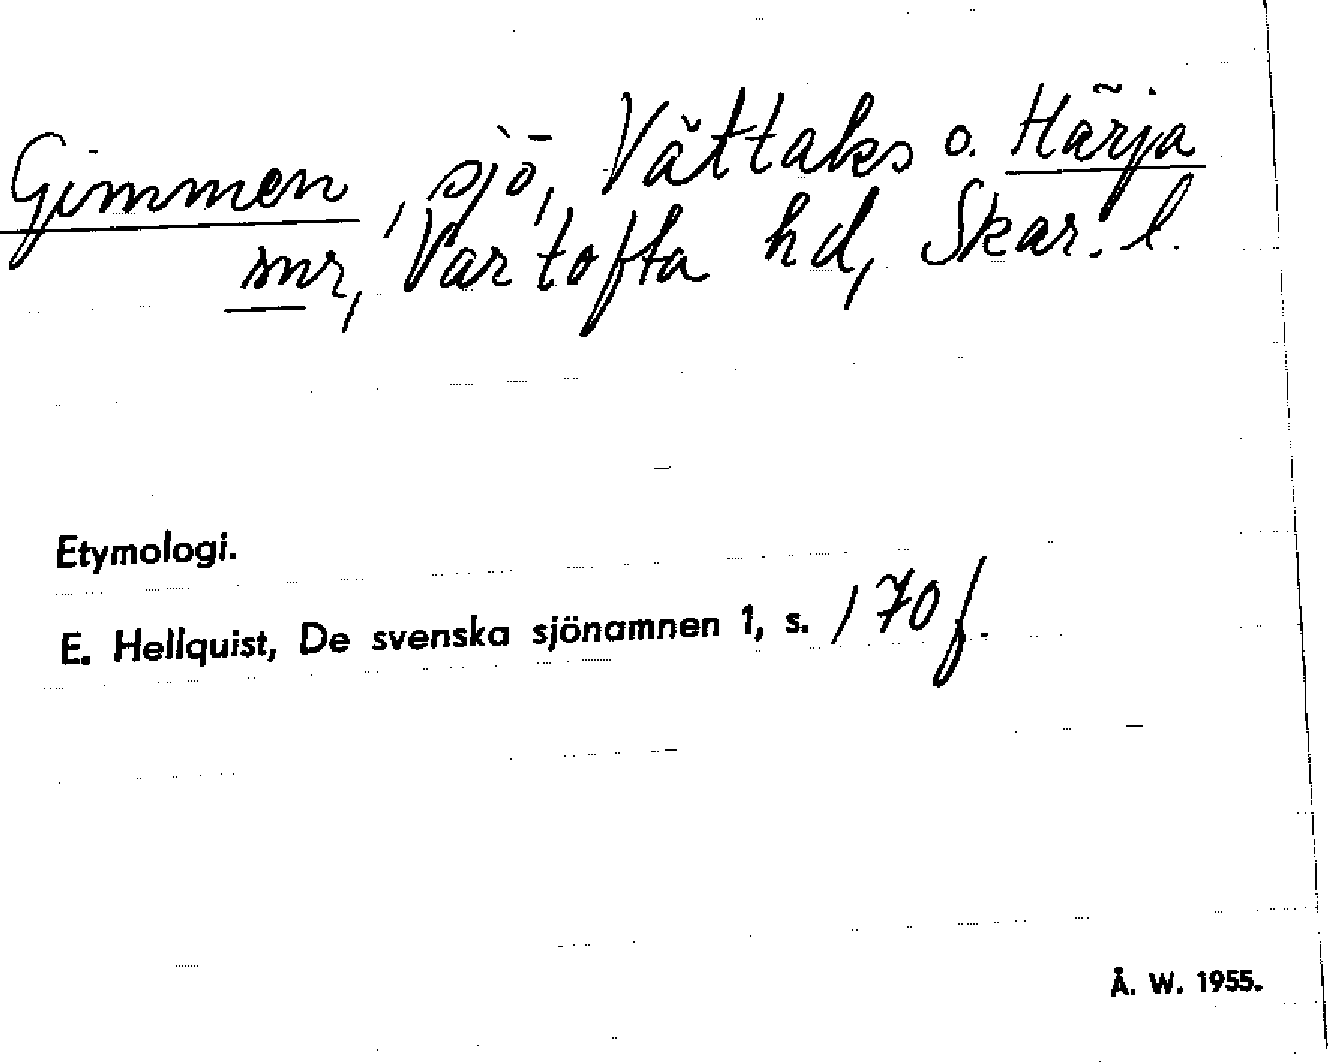 Gimmen, sjö, Vättaks o. Härja
snr, Vartofta hd, Skar. l.
Etymologi.
E. Hellquist, De svenska sjönamnen 1, s. 170 f.
Å. W. 1955.